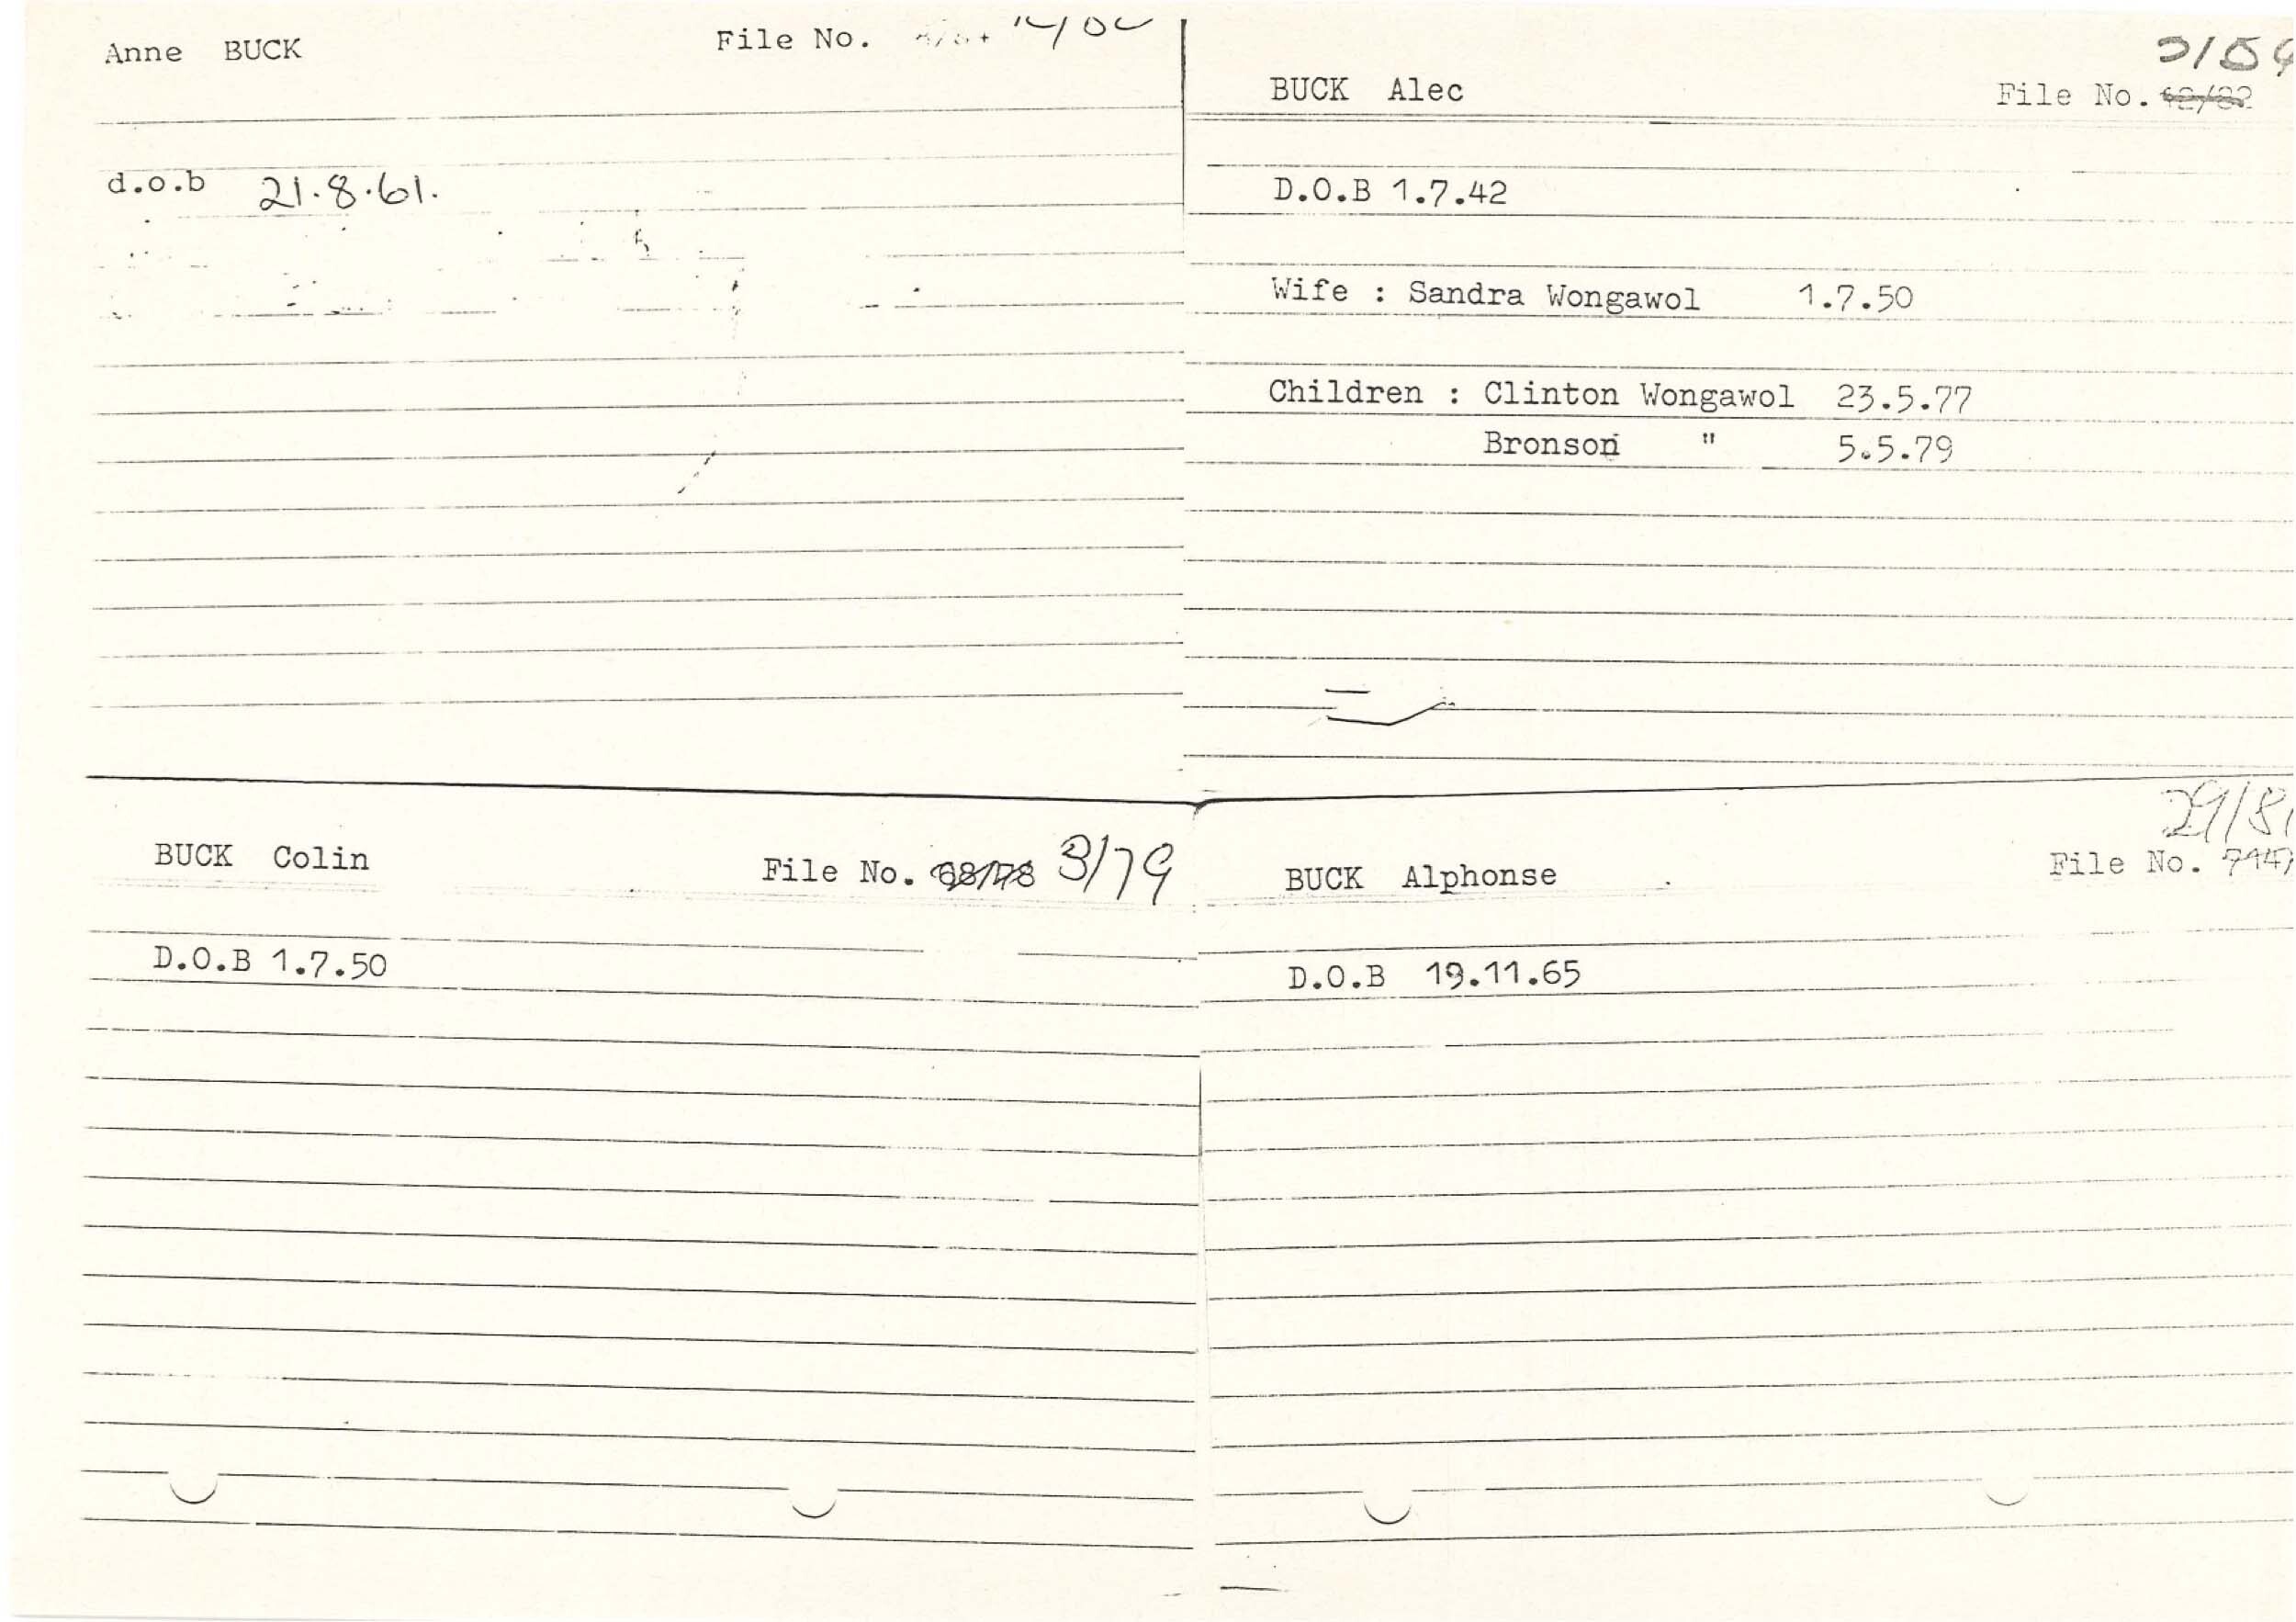 Anne BUCK File No.
d.o.b 21.8.61.
BUCK Alec File No.
D.O.B 1.7.42
Wife : Sandra Wongawol 1.7.50
Children : Clinton Wongawol 23.5.77
Bronson " 5.5.79
BUCK Colin File No. 3/79
D.O.B 1.7.50
29/81
BUCK Alphonse File No.
D.O.B 19.11.65